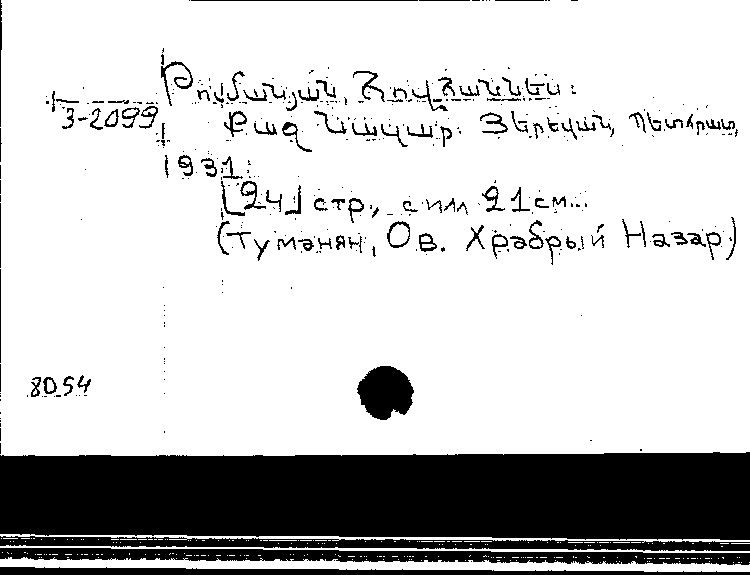 Թումանյան, Հովհաննես:
3-2099
Քաջ Նազար. Յերեվան, Պետհրատ,
1931:
[24] стр., с илл 21 см...
(Туманян, Ов. Храбрый Назар)
8054